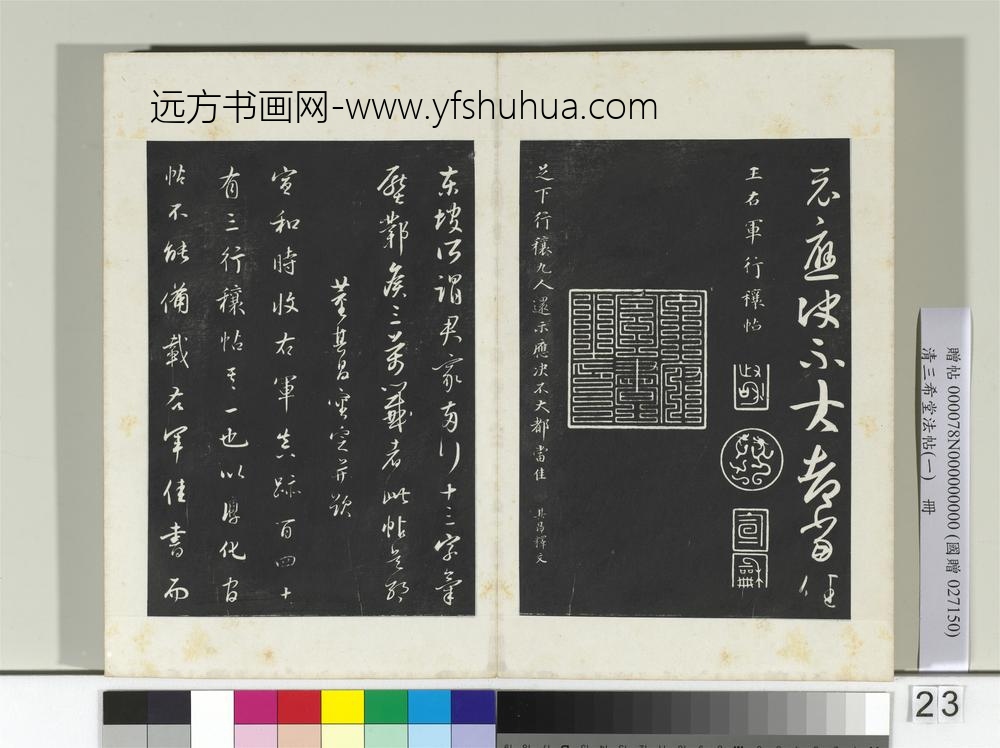 远方书画网-www.yfshuhua.com
示應決不大都當佳
王右軍行穰帖
宣和
足下行穰九人還示應決不大都當佳 其昌釋文
東坡所謂君家兩行十三字氣
壓鄴侯三萬籤者此帖是耶
董其昌審定并跋
宣和時收右軍真跡百四十
有三行穰帖其一也以淳化官
帖不能備載右軍佳書而
贈帖 000078N000000000 (國贈 027150)
清三希堂法帖(一) 冊
23